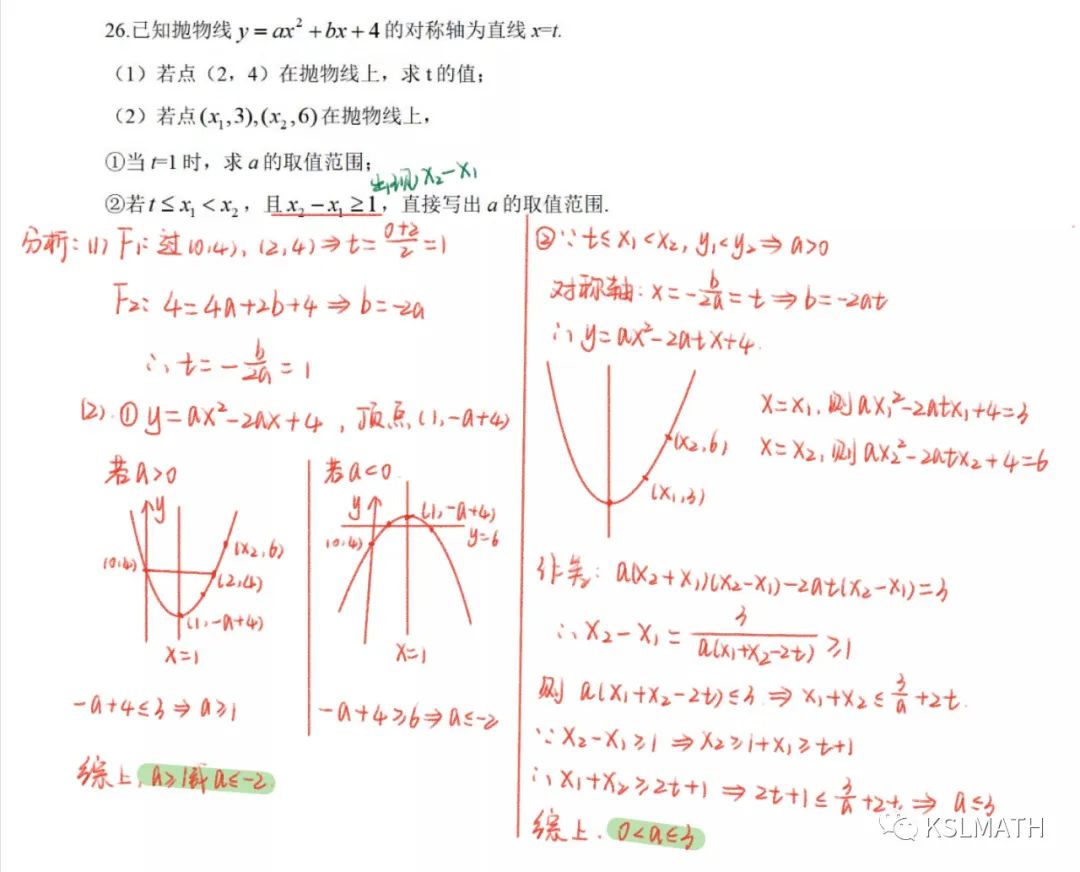 26.已知抛物线 y = ax² + bx + 4 的对称轴为直线 x=t.
（1）若点（2，4）在抛物线上，求 t 的值；
（2）若点(x₁,3),(x₂,6)在抛物线上，
①当 t=1 时，求 a 的取值范围；
出现 x₂-x₁
②若 t ≤ x₁ < x₂，且 x₂ - x₁ ≥ 1，直接写出 a 的取值范围.
分析: (1) F₁: 过(0,4), (2,4) ⇒ t = (0+2)/2 = 1
F₂: 4=4a+2b+4 ⇒ b=-2a
∴ t = -b/2a = 1
(2). ① y=ax²-2ax+4, 顶点(1,-a+4)
若a>0
y
(0,4)
(x₂,6)
(2,4)
(1,-a+4)
x=1
-a+4≤3 ⇒ a≥1
若a<0
y
(1,-a+4)
y=6
(0,4)
x=1
-a+4≥6 ⇒ a≤-2
综上, a≥1或a≤-2
② ∵ t≤x₁<x₂, y₁<y₂ ⇒ a>0
对称轴: x = -b/2a = t ⇒ b=-2at
∴ y=ax²-2atx+4.
(x₂,6)
(x₁,3)
x=x₁, 则ax₁²-2atx₁+4=3
x=x₂, 则ax₂²-2atx₂+4=6
作差: a(x₂+x₁)(x₂-x₁)-2at(x₂-x₁)=3
∴ x₂-x₁ = 3/a(x₁+x₂-2t) ≥1
则 a(x₁+x₂-2t)≤3 ⇒ x₁+x₂ ≤ 3/a +2t.
∵ x₂-x₁≥1 ⇒ x₂≥1+x₁≥t+1
∴ x₁+x₂≥2t+1 ⇒ 2t+1≤ 3/a +2t ⇒ a≤3
综上, 0<a≤3
KSLMATH